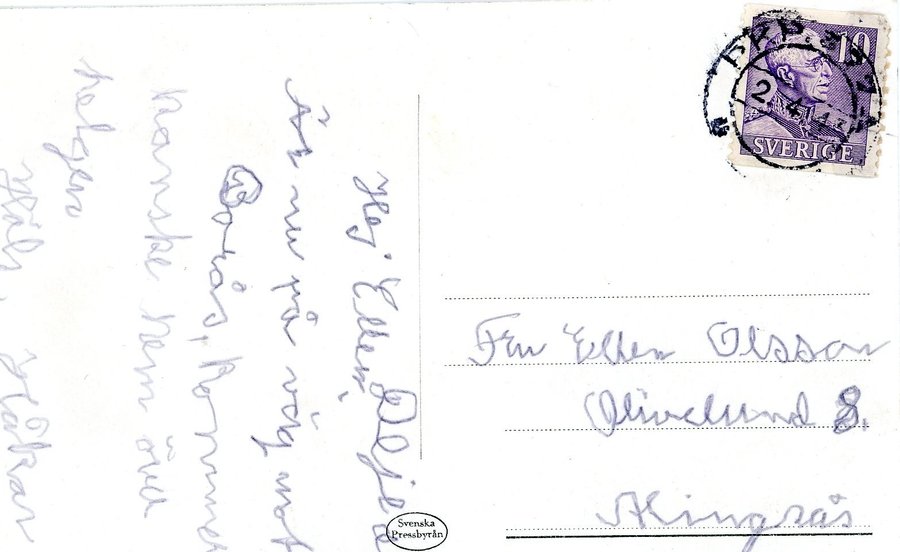 Hej Ellen,
Är nu på väg mot
Borås, kommer
kanske hem över
helgen
Häls. Håkan
Svenska
Pressbyrån
10
2.4.43
SVERIGE
Fru Ellen Olsson
Olivelund 8.
Alingsås